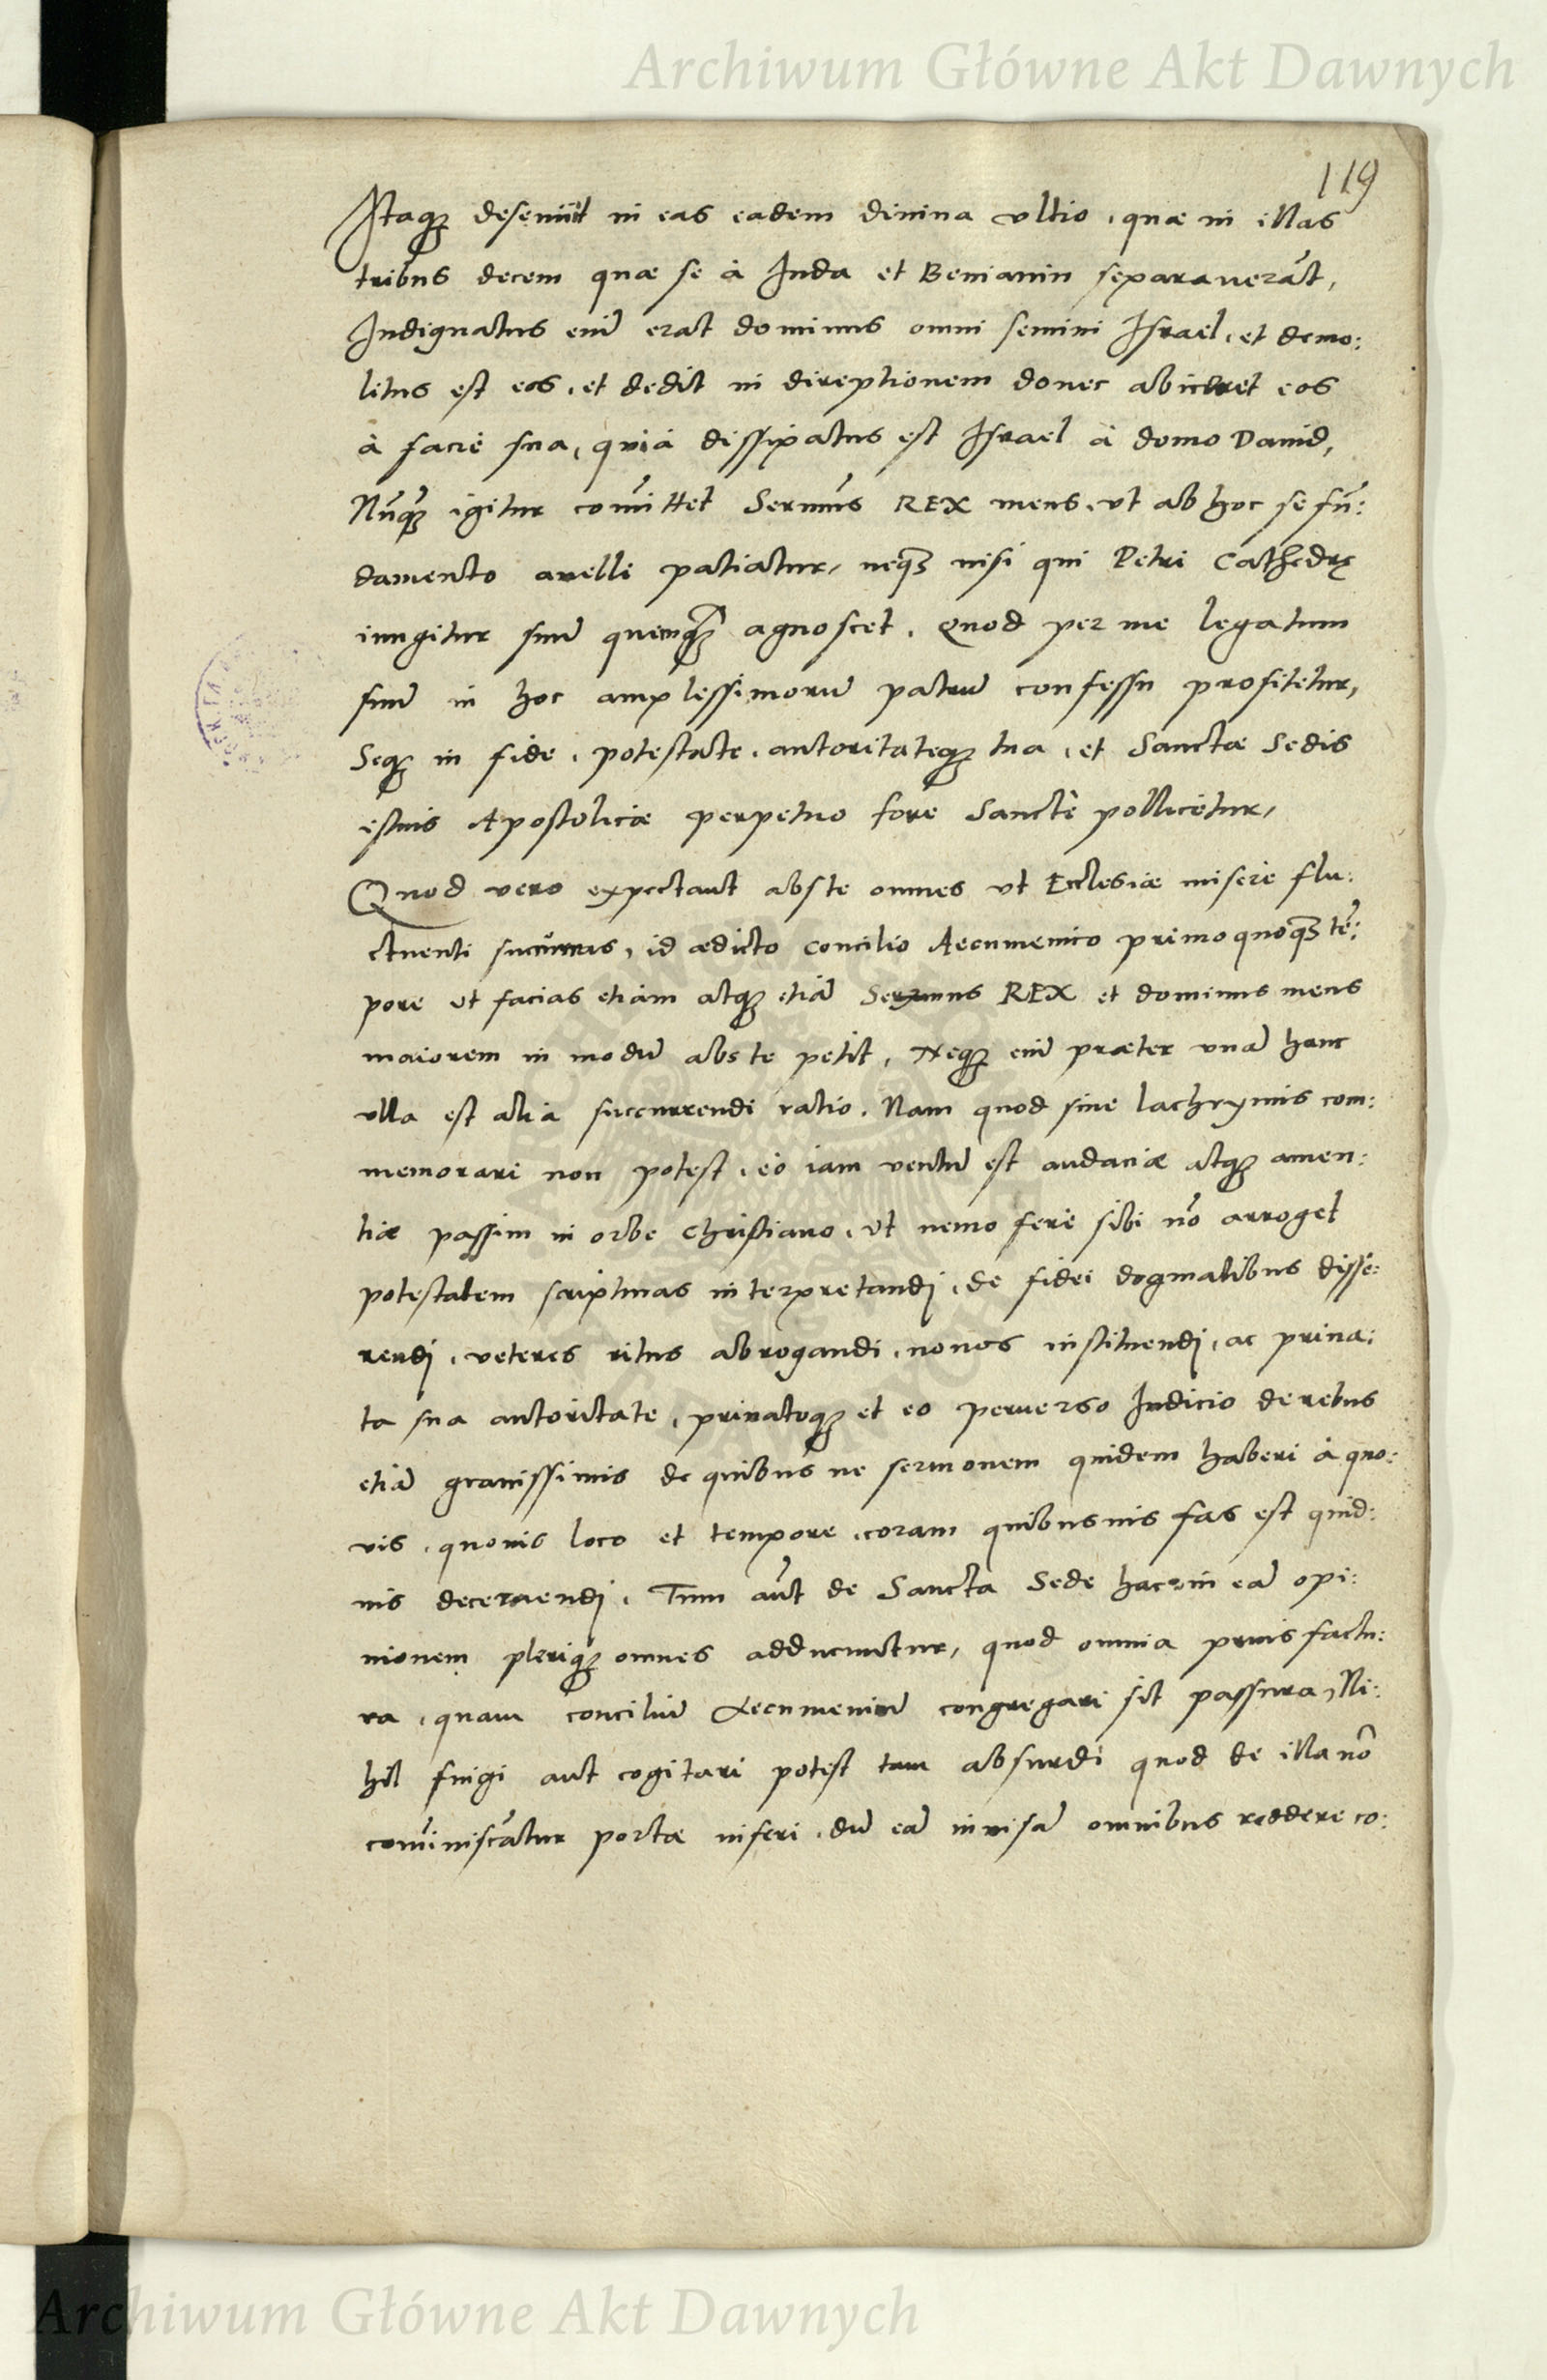 Archiwum Główne Akt Dawnych
119
Itaq; deseuiit in eas eadem diuina vltio, quæ in illas
tribus decem quæ se à Iuda et Beniamin separauerāt,
Indignatus enī erat dominus omni semini Israel, et demo:
litus est eos, et dedit in direptionem donec abiiceret eos
à facie sua, quia dissipatus est Israel à domo Dauid,
Nūq̃ igitur cōmittet Sermus REX meus, vt ab hoc se fū:
damento auelli patiatur, neq; nisi qui Petri Cathedrę
iungitur suū quenq̃ agnoscet. Quod per me legatum
suū in hoc amplissimorū patrū consessu profitetur,
Seq; in fide, potestate, autoritateq; tua, et Sanctæ Sedis
istius Apostolicæ perpetuo fore Sanctè pollicetur,
Quod vero expectant abs te omnes vt Ecclesiæ miserè flu:
ctuenti succurras, id ædicto Concilio Aecumenico primo quoq; tē:
pore vt facias etiam atq; etiā Sermus REX et dominus meus
maiorem in modū abs te petit, Neq; enī præter vnā hanc
vlla est alia succurrendi ratio. Nam quod sine lachrymis com:
memorari non potest, eò iam ventū est audaciæ atq; amen:
tiæ passim in orbe Christiano, vt nemo ferè sibi nō arroget
potestatem scripturas interpretandj, de fidei dogmatibus disse:
rendj, veteres ritus abrogandi, nouos instituendj, ac priua:
ta sua autoritate, priuatoq; et eo peruerso Iudicio de rebus
etiā grauissimis de quibus ne sermonem quidem haberi à quo:
vis, quouis loco et tempore, coram quibusuis fas est quid:
uis decernendj. Tum aūt de Sancta Sede hac in eā opi:
nionem pleriq; omnes adducuntur, quod omnia prius factu:
ra, quam conciliū Aecumenicū congregari sit passura, Ni:
hil fingi aut cogitari potest tam absurdi quod de illa nō
cōminiscātur portæ inferi, dū eā inuisā omnibus reddere co:
Archiwum Główne Akt Dawnych